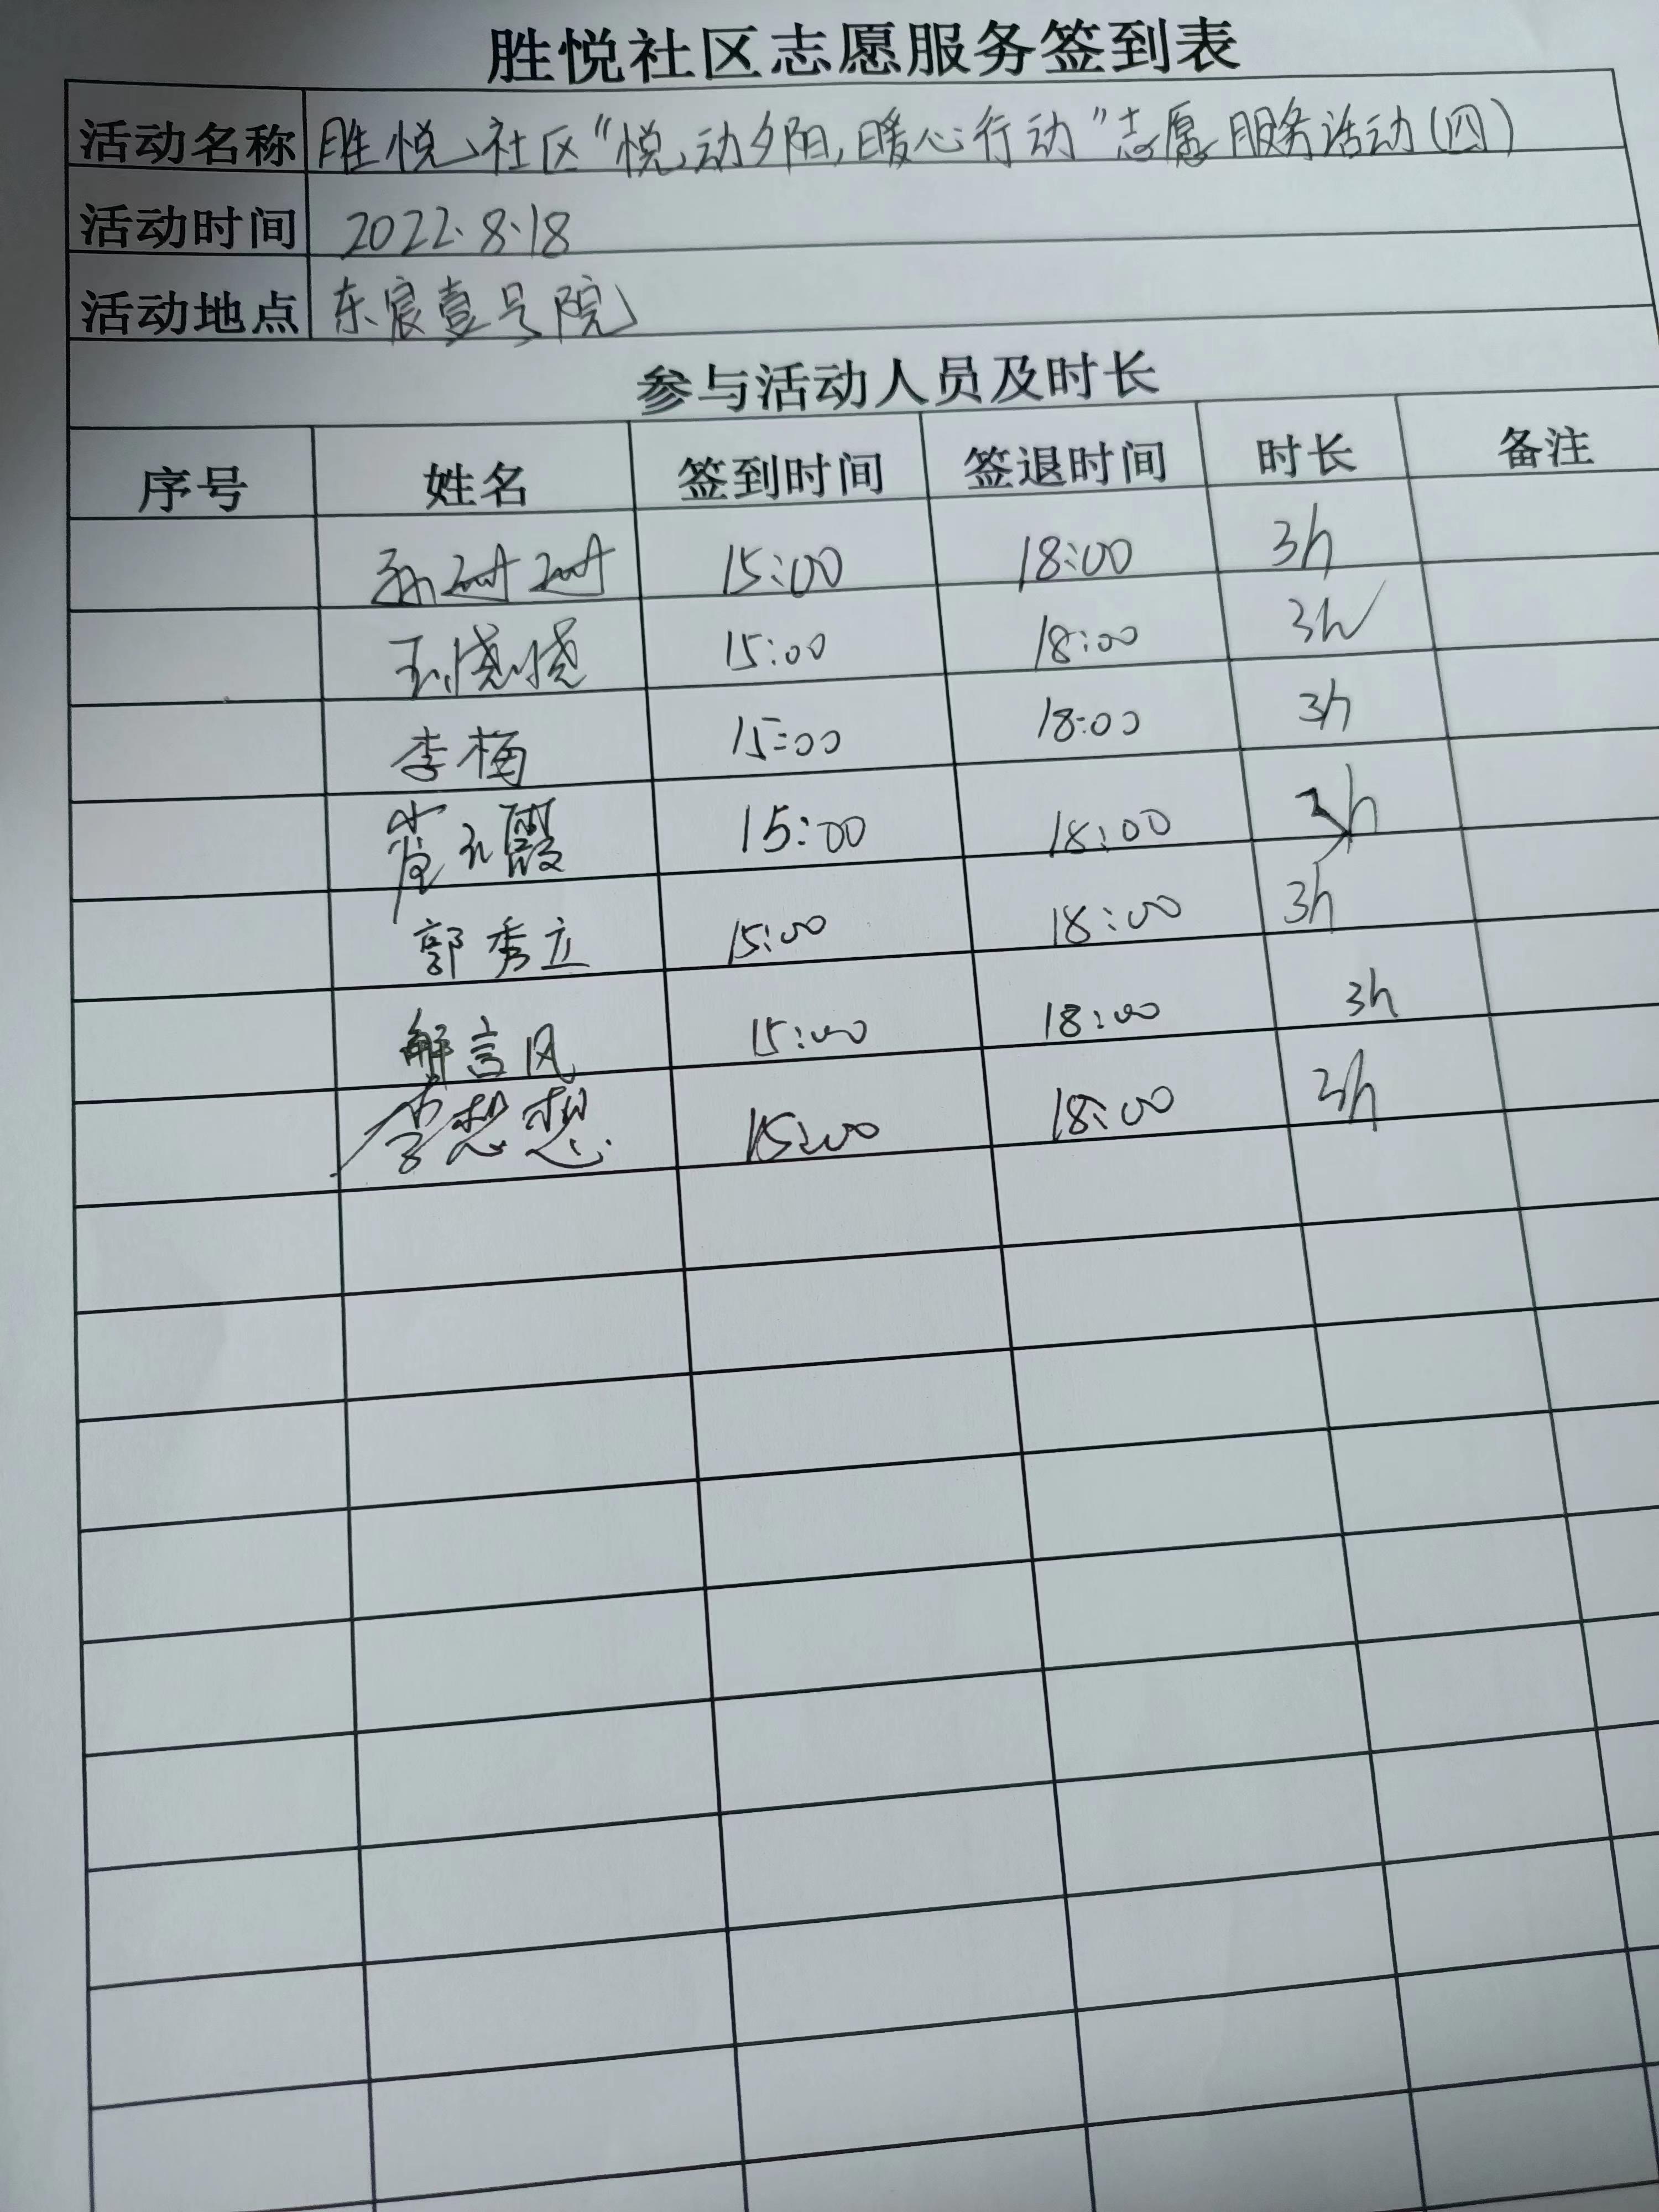 胜悦社区志愿服务签到表
活动名称 胜悦社区“悦动夕阳,暖心行动”志愿服务活动(四)
活动时间 2022.8.18
活动地点 东宸壹号院
参与活动人员及时长
序号 姓名 签到时间 签退时间 时长 备注
15:00 18:00 3h
王晓晓 15:00 18:00 3h
李梅 15:00 18:00 3h
崔 霞 15:00 18:00 3h
郭秀立 15:00 18:00 3h
解言风 15:00 18:00 3h
李想想 15:00 18:00 3h